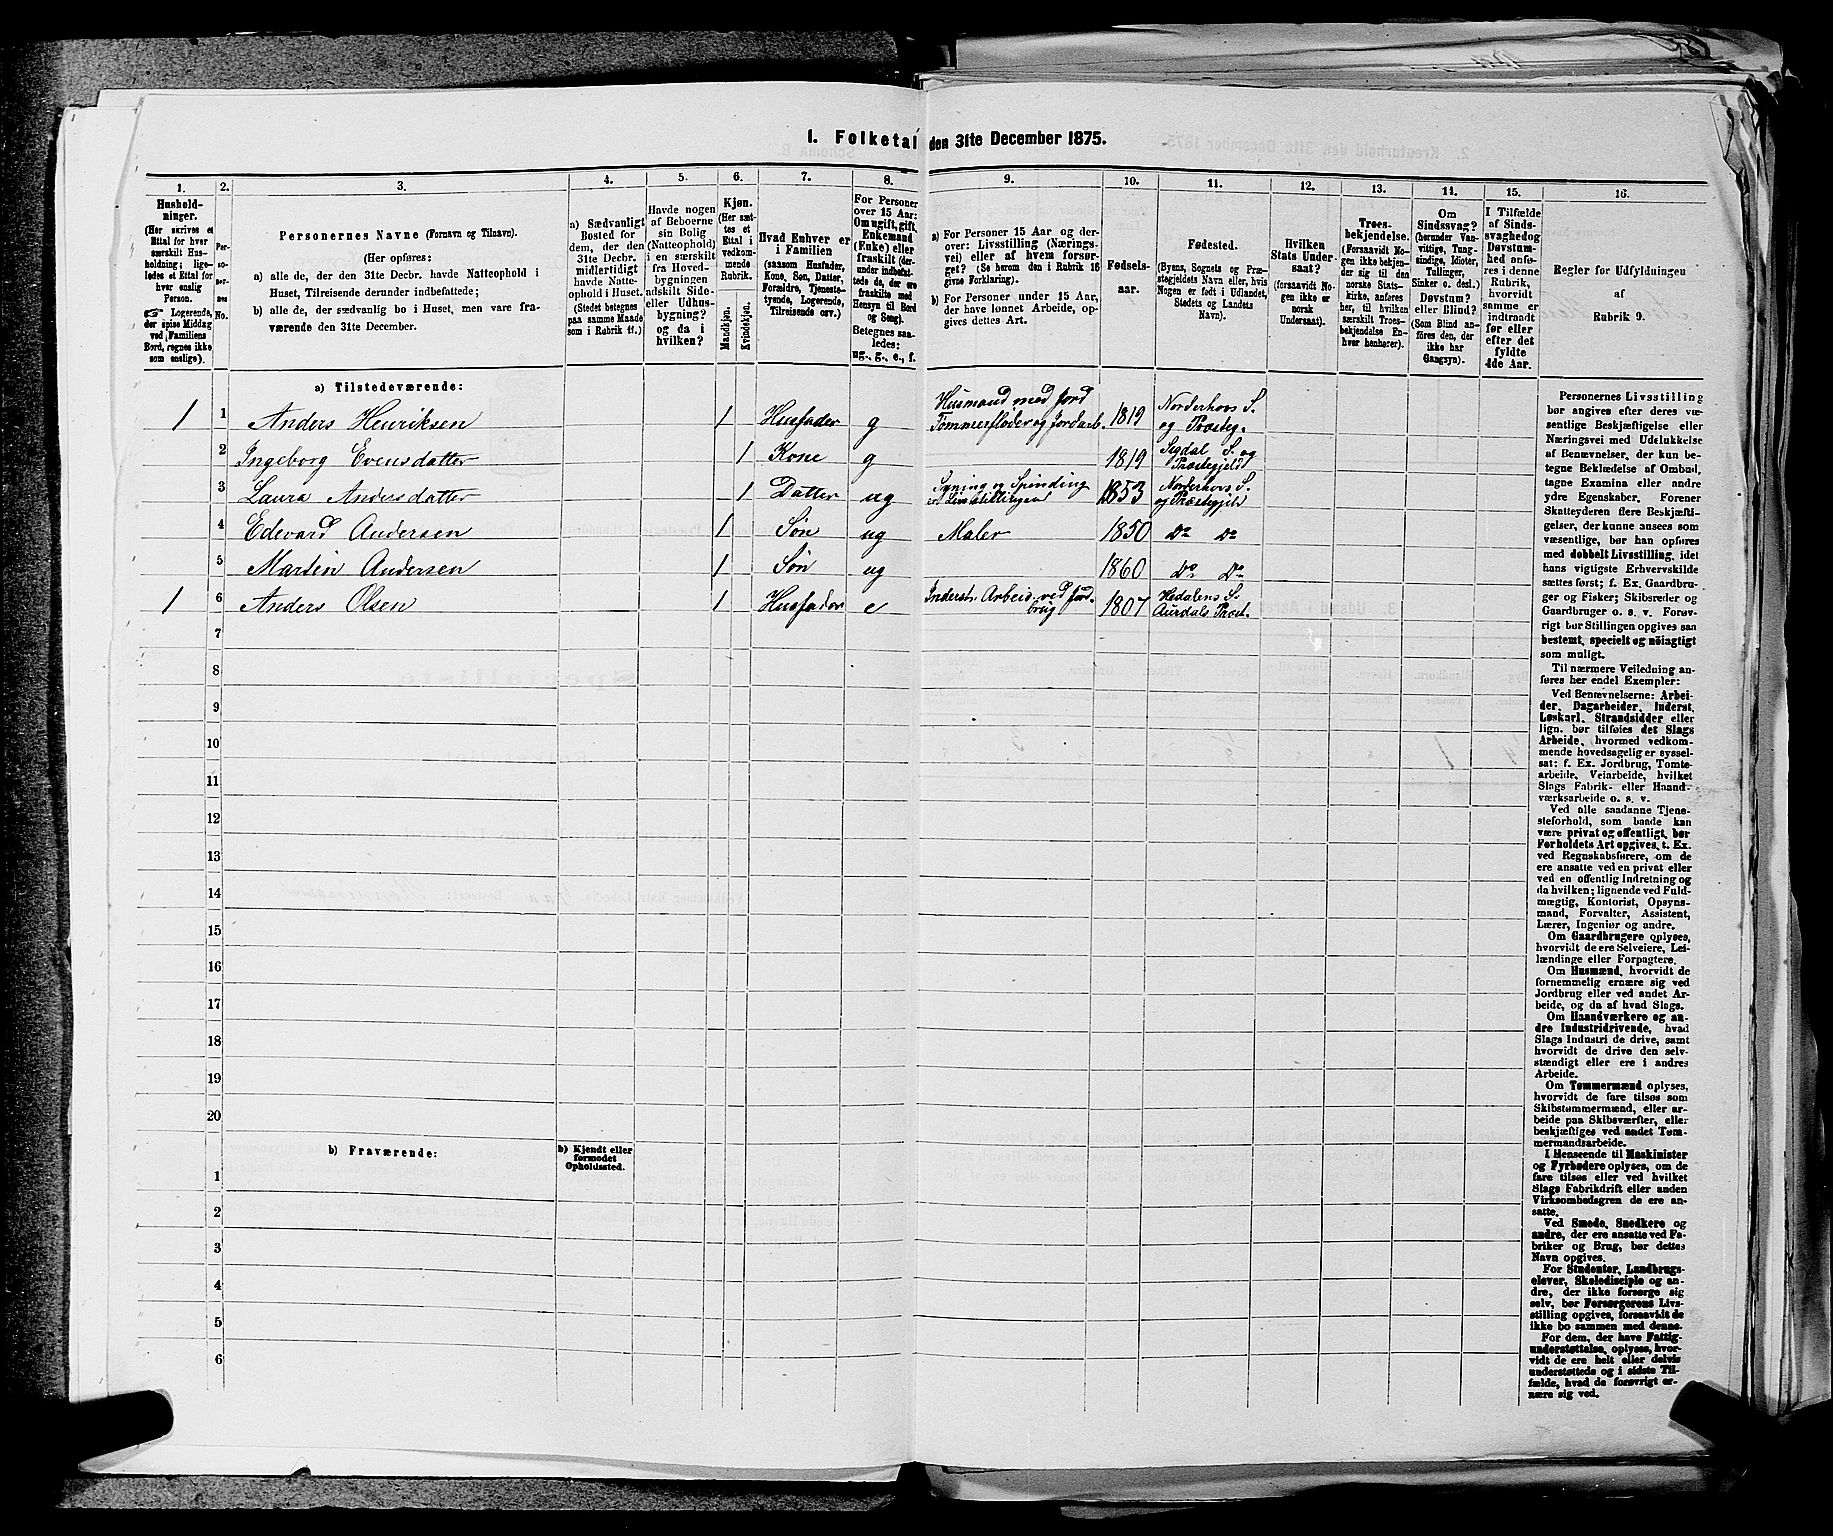 1. Folketal den 31te December 1875.
1. 2. 3. 4. 5. 6. 7. 8. 9. 10. 11. 12. 13. 14. 15. 16.
Husholdninger.
(Her skrives et Ettal for hver særskilt Husholdning; ligeledes et Ettal for hver enslig Person.
☞ Logerende, der spise Middag ved Familiens Bord, regnes ikke som enslige).
Personernes No.
Personernes Navne (Fornavn og Tilnavn).
(Her opføres:
a) alle de, der den 31te Decbr. havde Natteophold i Huset, Tilreisende derunder indbefattede;
b) alle de, der sædvanlig bo i Huset, men vare fraværende den 31te December.
a) Sædvanligt Bosted for dem, der den 31te Decbr. midlertidigt havde Natteophold i Huset.
(Stedet betegnes paa samme Maade som i Rubrik 11.)
Havde nogen af Beboerne sin Bolig (Natteophold) i en særskilt fra Hovedbygningen adskilt Side- eller Udhusbygning? og da i hvilken?
Kjøn.
(Her sættes et Ettal i vedkommende Rubrik.
Mandkjøn.
Kvindekjøn.
Hvad Enhver er i Familien
(saasom Husfader, Kone, Søn, Datter, Forældre, Tjenestetyende, Logerende, Tilreisende osv.)
For Personer over 15 Aar: Om ugift, gift, Enkemand (Enke) eller fraskilt (derunder indbefattede de, der ere fraskilte med Hensyn til Bord og Seng).
Betegnes saaledes:
ug., g., e., f.
a) For Personer 15 Aar og derover: Livsstilling (Næringsvei) eller af hvem forsørget? (Se herom den i Rubrik 16 givne Forklaring).
b) For Personer under 15 Aar, der have lønnet Arbeide, opgives dettes Art.
Fødselsaar.
Fødested.
(Byens, Sognets og Præstegjeldets Navn eller, hvis Nogen er født i Udlandet, Stedets og Landets Navn).
Hvilken Stats Undersaat?
(forsaavidt Nogen ikke er norsk Undersaat).
Troesbekjendelse.
(Forsaavidt Nogen ikke bekjender sig til den norske Statskirke, anføres her, til hvilken særskilt Troesbekjendelse Enhver henhører).
Om Sindssvag? (herunder Vanvittige, Tungsindige, Idioter, Tullinger, Sinker o. desl.) Døvstum? eller Blind?
(Som Blind anføres den, der ikke har Gangsyn).
I Tilfælde af Sindssvaghed og Døvstumhed anføres i denne Rubrik, hvorvidt samme er indtraadt før eller efter det fyldte 4de Aar.
Regler for Udfyldningen
af
Rubrik 9.
a) Tilstedeværende:
1 1 Anders Henriksen 1 Husfader g Husmand med Jord Tømmerfløder og Jordarb. 1819 Norderhovs S. og Præsteg.
2 Ingeborg Evensdatter 1 Kone g 1819 Sigdal S. og Præstegjeld
3 Laura Andersdatter 1 Datter ug Syning og Spinding 1853 Norderhovs S. og Præstegjeld
4 Edevard Andersen 1 Søn ug Maler 1850 Do Do
5 Martin Andersen 1 Søn ug 1860 Do Do
1 6 Anders Olsen 1 Husfader e Inderst. Arbeid. ved Jordbrug 1807 Hedalens S. Aurdals Præst.
7
8
9
10
11
12
13
14
15
16
17
18
19
20
b) Fraværende:
b) Kjendt eller formodet Opholdssted.
1
2
3
4
5
6
Personernes Livsstilling
bør angives efter deres væ-
sentlige Beskjæftigelse eller
Næringsvei med Udelukkelse
af Benævnelser, der kun be-
tegne Beklædelse af Ombud,
tagne Examina eller andre
ydre Egenskaber. Forener
Skatteyderen flere Beskjæfti-
gelser, der kunne ansees som
væsentlige, bør han opføres
med dobbelt Livsstilling, idet
hans vigtigste Erhvervskilde
sættes først; f. Ex. Gaardbru-
ger og Fisker; Skibsreder og
Gaardbruger o. s. v. Forøv-
rigt bør Stillingen opgives saa
bestemt, specielt og nøiagtigt
som muligt.
Til nærmere Veiledning an-
føres her endel Exempler:
Ved Benævnelserne: Arbei-
der, Dagarbeider, Inderst,
Løskarl, Strandsidder eller
lign. bør tilføies det Slags
Arbeide, hvormed vedkom-
mende hovedsagelig er syssel-
sat: f. Ex. Jordbrug, Tomte-
arbeide, Veiarbeide, hvilket
Slags Fabrik- eller Haand-
værksarbeide o. s. v.
Ved alle saadanne Tjene-
steforhold, som baade kan
være privat og offentligt, bør
Forholdets Art opgives, t. Ex.
ved Regnskabsførere, om de
ere ansatte ved en privat eller
ved en offentlig Indretning og
da hvilken; lignende ved Fuld-
mægtig, Kontorist, Opsyns-
mand, Forvalter, Assistent,
Lærer, Ingeniør og andre.
Om Gaardbrugere oplyses,
hvorvidt de ere Selveiere, Lei-
lændinge eller Forpagtere.
Om Husmænd, hvorvidt de
fornemmelig ernære sig ved
Jordbrug eller ved andet Ar-
beide, og da af hvad Slags.
Om Haandværkere og an-
dre Industridrivende, hvad
Slags Industri de drive, samt
hvorvidt de drive den selv-
stændigt eller ere i andres
Arbeide.
Om Tømmermænd oplyses,
hvorvidt de fare tilsøs som
Skibstømmermænd, eller ar-
beide paa Skibsværfter, eller
beskjæftiges ved andet Tøm-
mermandsarbeide.
I Henseende til Maskinister
og Fyrbødere oplyses, om de
fare tilsøs eller ved hvilket
Slags Fabrikdrift eller anden
Virksomhedsgren de ere an-
satte.
Ved Smede, Snedkere og
andre, der ere ansatte ved Fa-
briker og Brug, bør dettes
Navn opgives.
For Studenter, Landbrugs-
elever, Skoledisciple og an-
dre, der ikke forsørge sig
selv, bør Forsørgerens Livs-
stilling opgives, forsaavidt de
ikke bo sammen med denne.
For dem, der have Fattig-
understøttelse, oplyses, hvor-
vidt de ere helt eller delvis
understøttede og i sidste Til-
fælde, hvad de forøvrigt er-
nære sig ved.